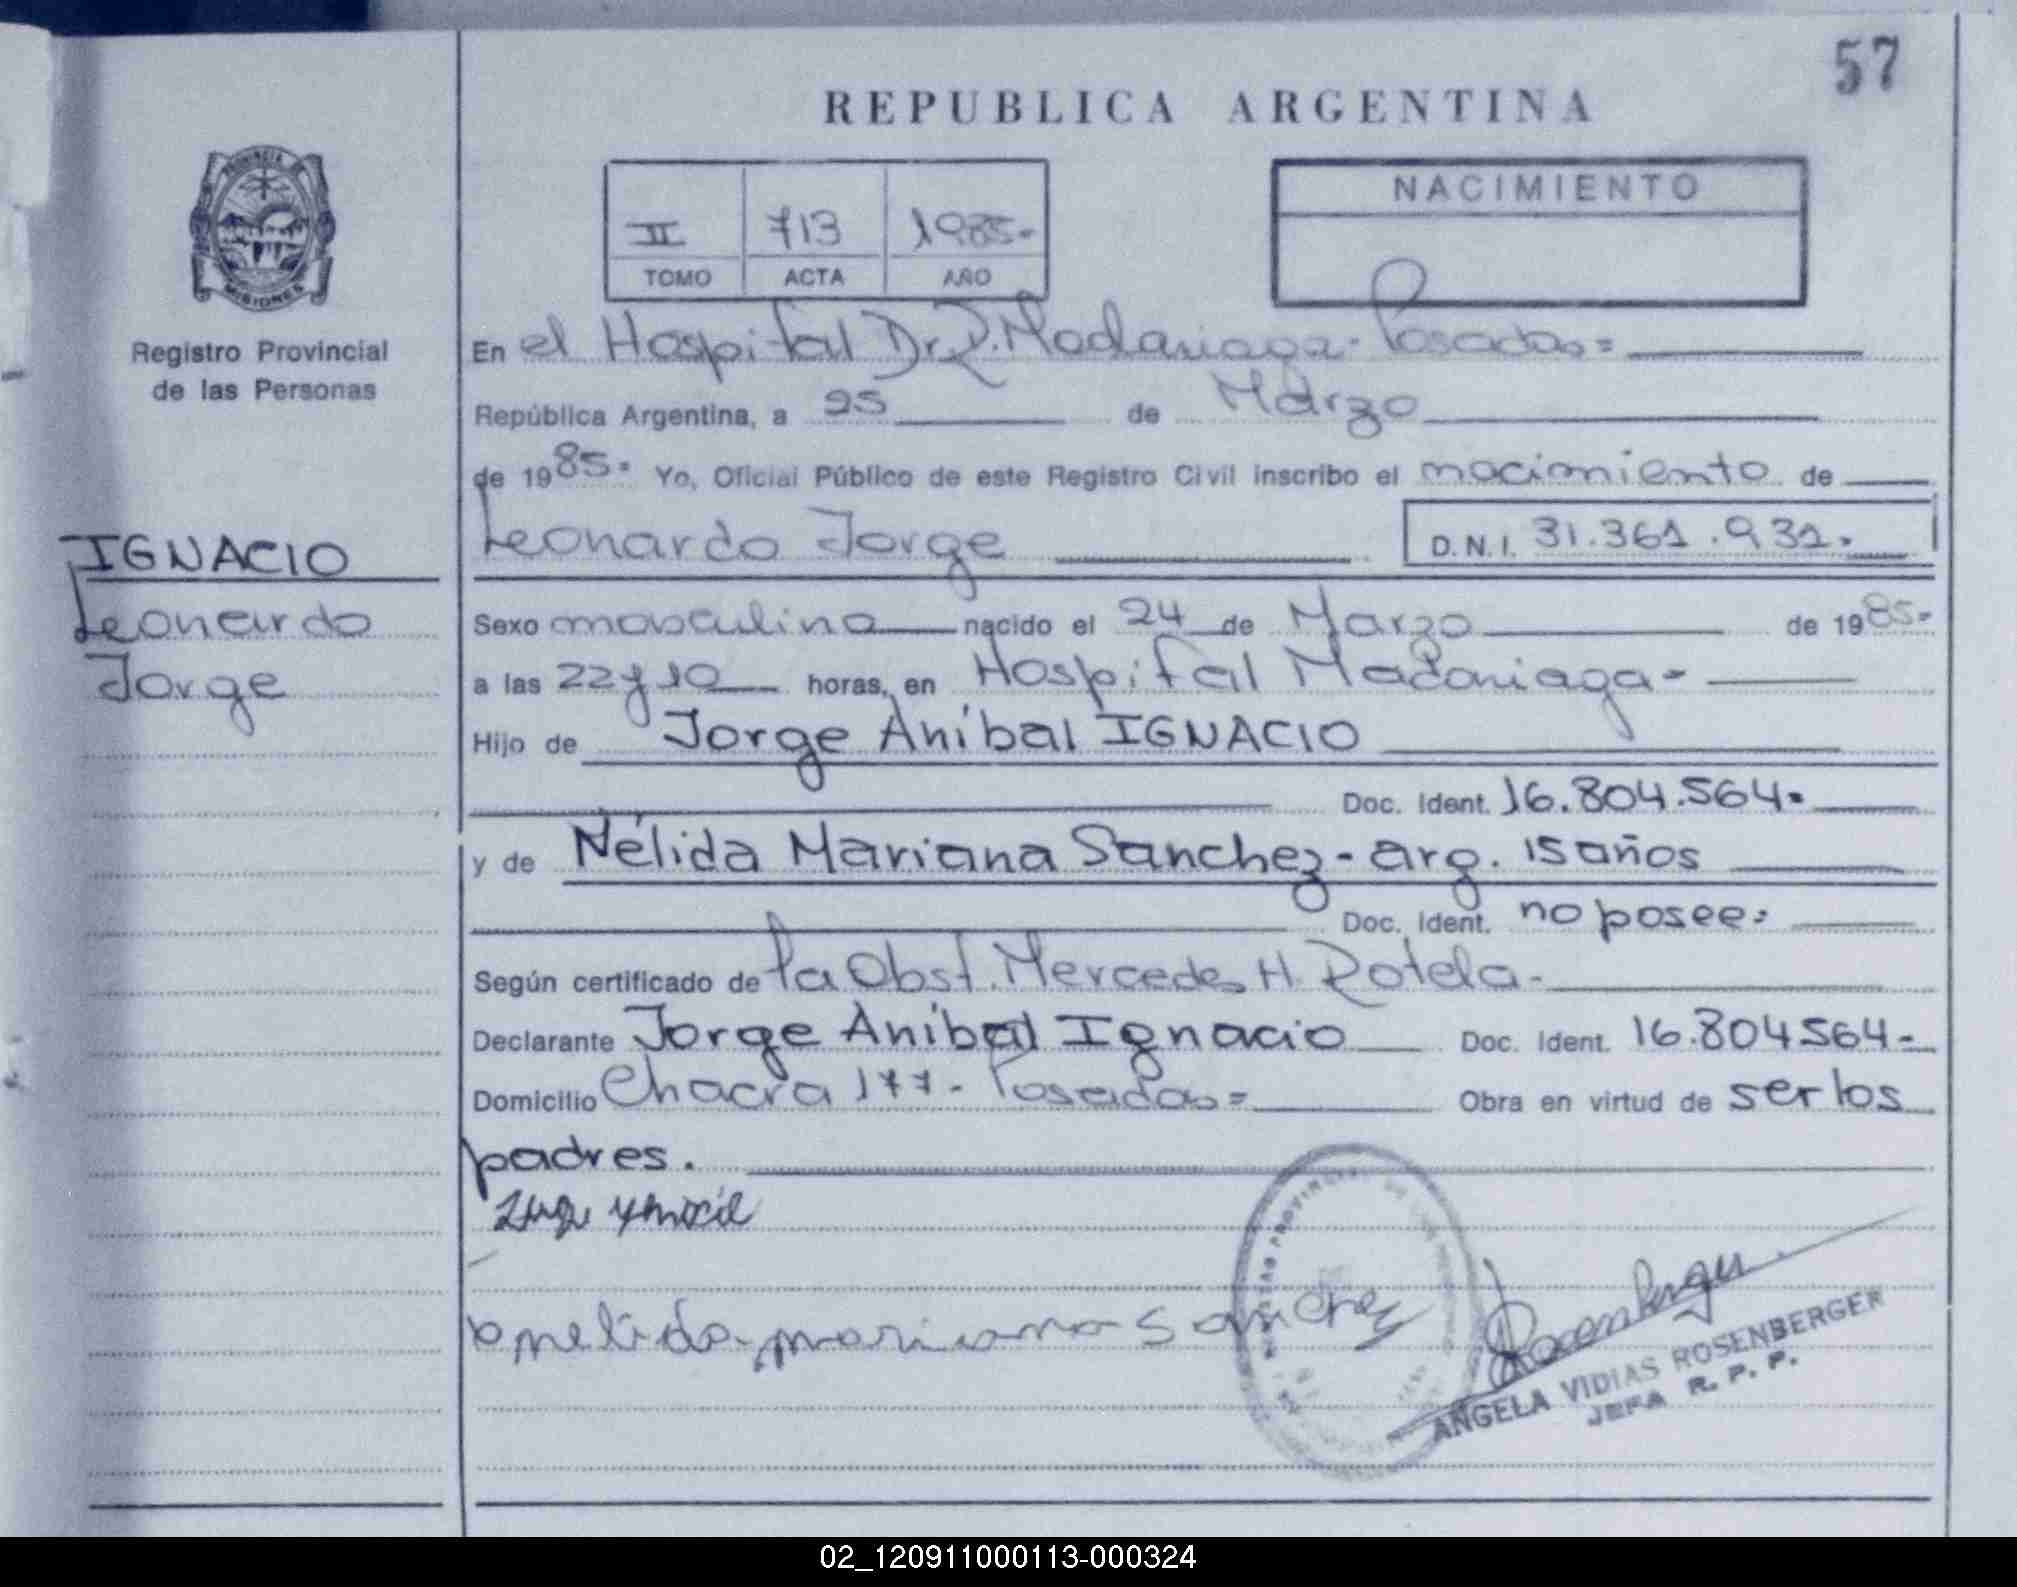 57
REPUBLICA ARGENTINA
PROVINCIA DE
MISIONES
Registro Provincial
de las Personas
II 713 1985-
TOMO ACTA AÑO
NACIMIENTO
En el Hospital Dr. R. Madariaga- Posadas=
República Argentina, a 25 de Marzo
de 1985= Yo, Oficial Público de este Registro Civil inscribo el nacimiento de
Leonardo Jorge D.N.I. 31.361.931.-
IGNACIO
Leonardo
Jorge
Sexo masculino nacido el 24 de Marzo de 1985-
a las 22 y 10 horas, en Hospital Madariaga-
Hijo de Jorge Aníbal IGNACIO
Doc. Ident. 16.804.564-
y de Nélida Mariana Sanchez- arg. 15 años
Doc. Ident. no posee=
Según certificado de la Obst. Mercedes H. Rotela-
Declarante Jorge Aníbal Ignacio Doc. Ident. 16.804564-
Domicilio Chacra 177- Posadas= Obra en virtud de ser los
padres.
nelida mariana Sanchez
Rosenberger
ANGELA VIDIAS ROSENBERGER
JEFA R. P. P.
02_120911000113-000324